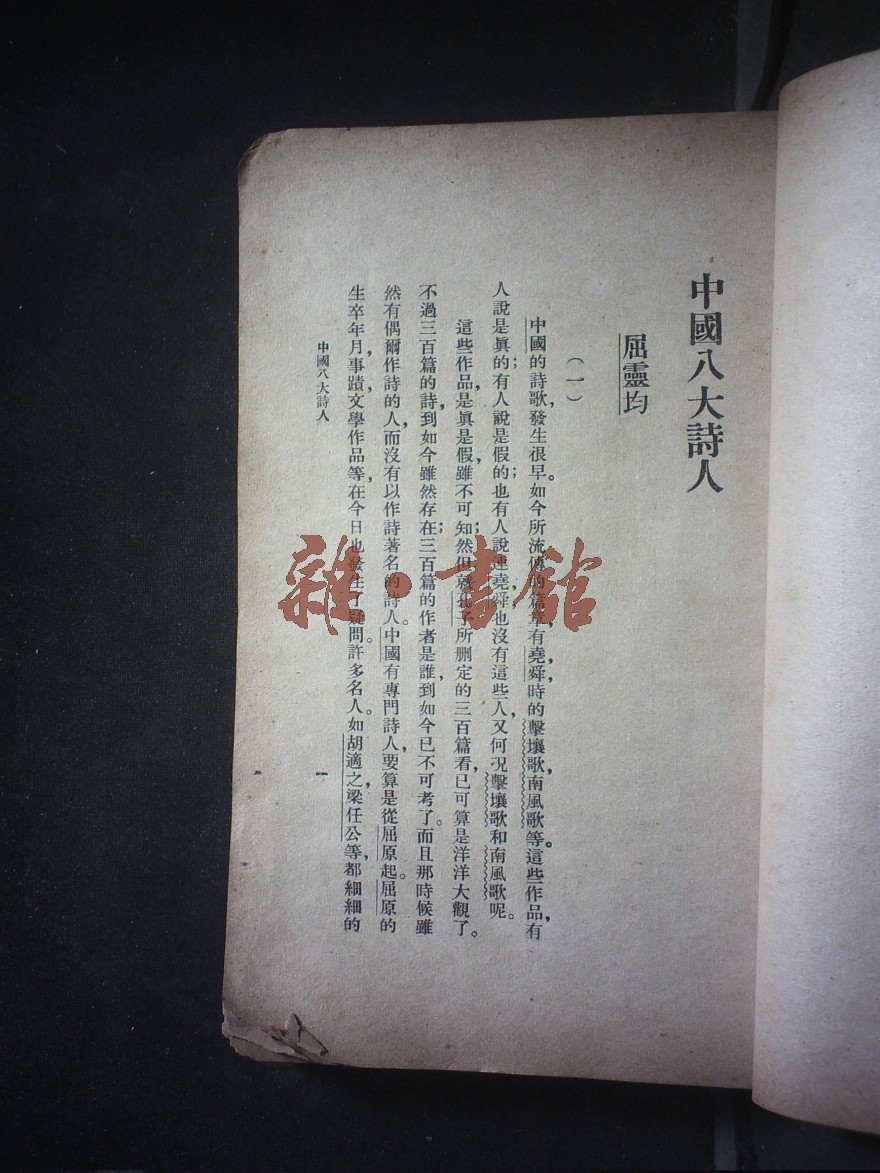 中國八大詩人
屈靈均
（一）
中國的詩歌，發生很早。如今所流傳的篇章，有堯，舜，時的擊壤歌南風歌等。這些作品，有
人說是眞的；有人說是假的；也有人說連堯，舜，也沒有這些人，又何况擊壤歌和南風歌呢。
這些作品，是眞是假，雖不可知；然但就孔子所删定的三百篇看，已可算是洋洋大觀了。
不過三百篇的詩，到如今雖然存在；三百篇的作者是誰，到如今已不可考了。而且那時候雖
然有偶爾作詩的人，而沒有以作詩著名的詩人。中國有專門詩人，要算是從屈原起。屈原的
生卒年月，事蹟，文學作品等，在今日也發生了疑問。許多名人。如胡適之，梁任公等，都細細的
中國八大詩人
一
雜·書館